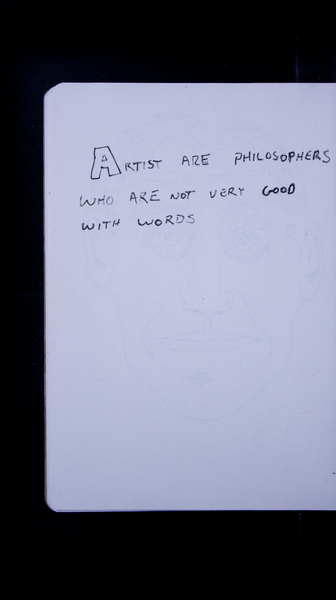 ARTIST ARE PHILOSOPHERS
WHO ARE NOT VERY GOOD
WITH WORDS